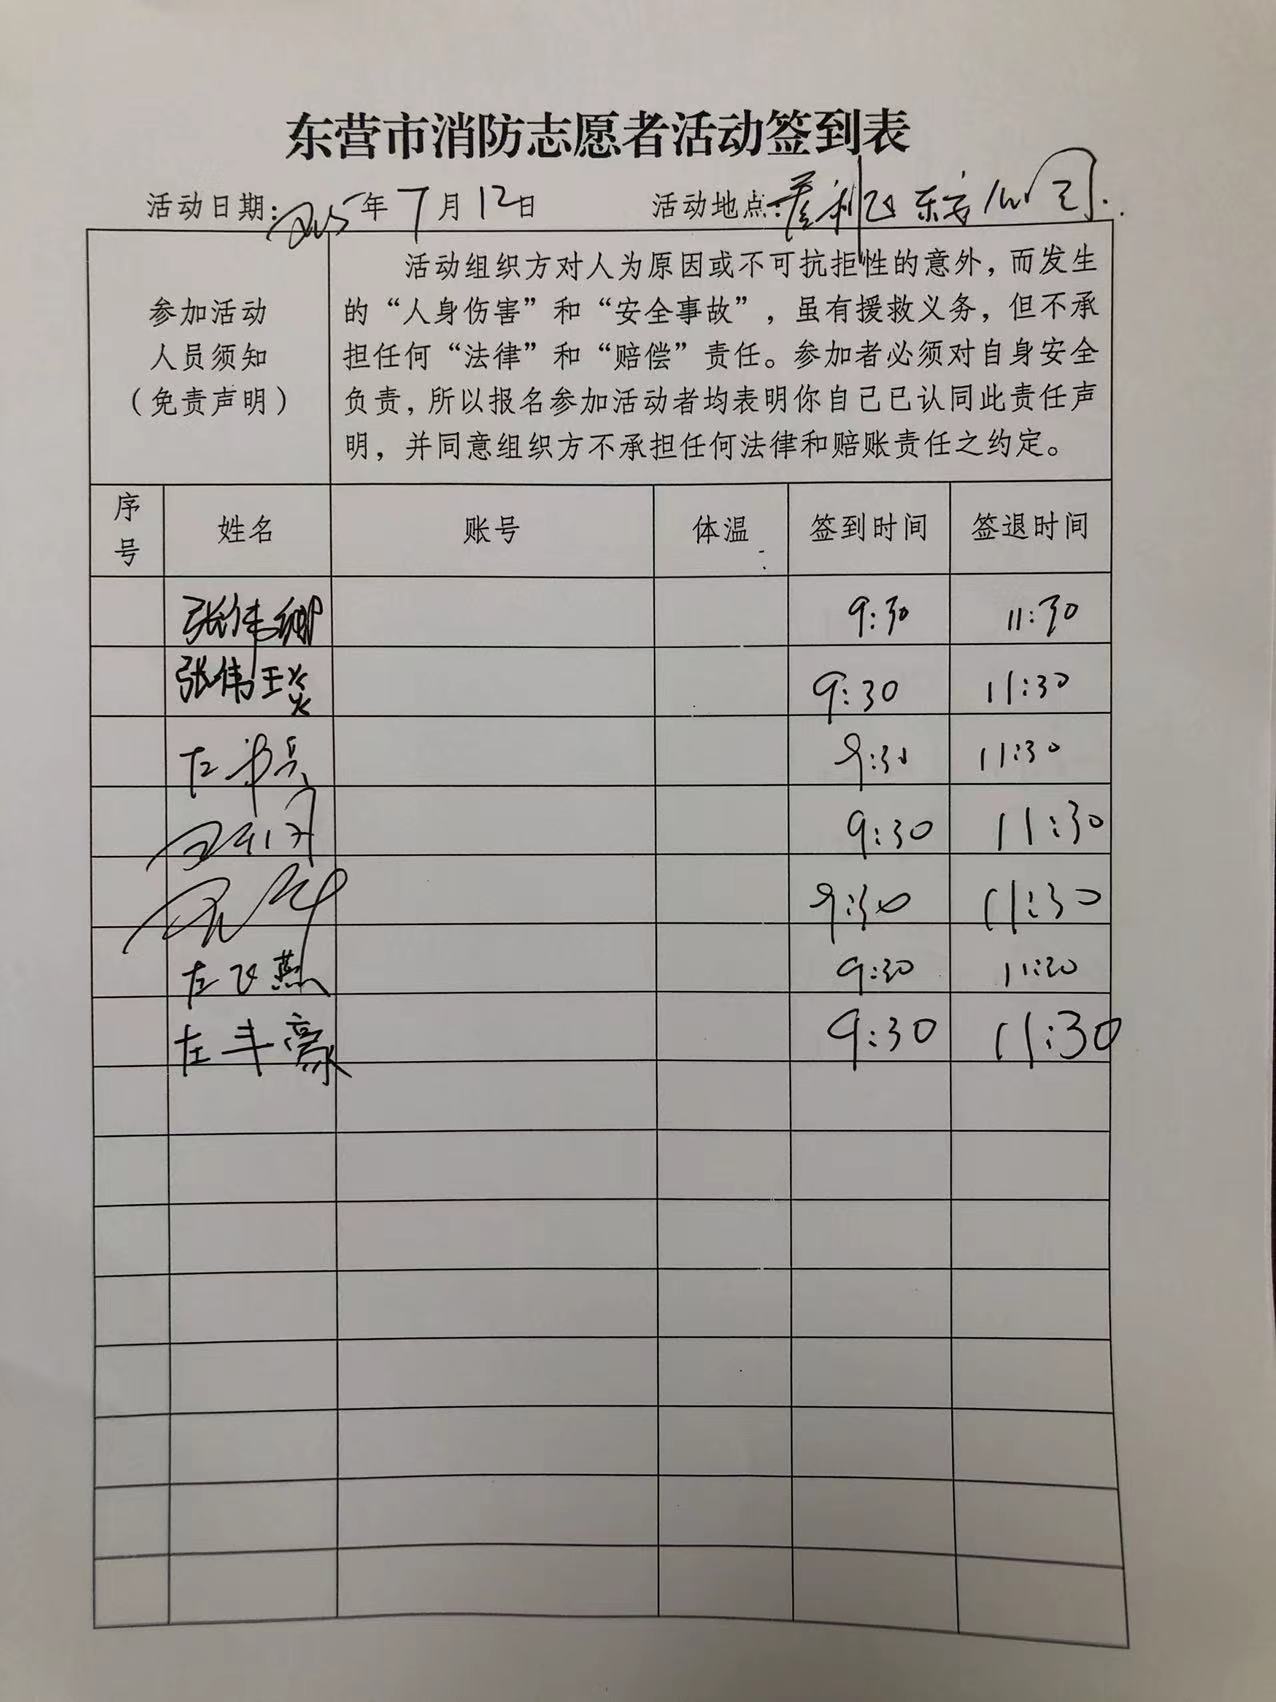 东营市消防志愿者活动签到表
活动日期：2025年7月12日 活动地点：利 东 公司.
参加活动
人员须知
（免责声明）
活动组织方对人为原因或不可抗拒性的意外，而发生
的“人身伤害”和“安全事故”，虽有援救义务，但不承
担任何“法律”和“赔偿”责任。参加者必须对自身安全
负责，所以报名参加活动者均表明你自己已认同此责任声
明，并同意组织方不承担任何法律和赔账责任之约定。
序号 姓名 账号 体温 签到时间 签退时间
张伟 9:30 11:30
张伟 9:30 11:30
左 兵 9:30 11:30
9:30 11:30
9:30 11:30
左飞燕 9:30 11:30
左丰豪 9:30 11:30